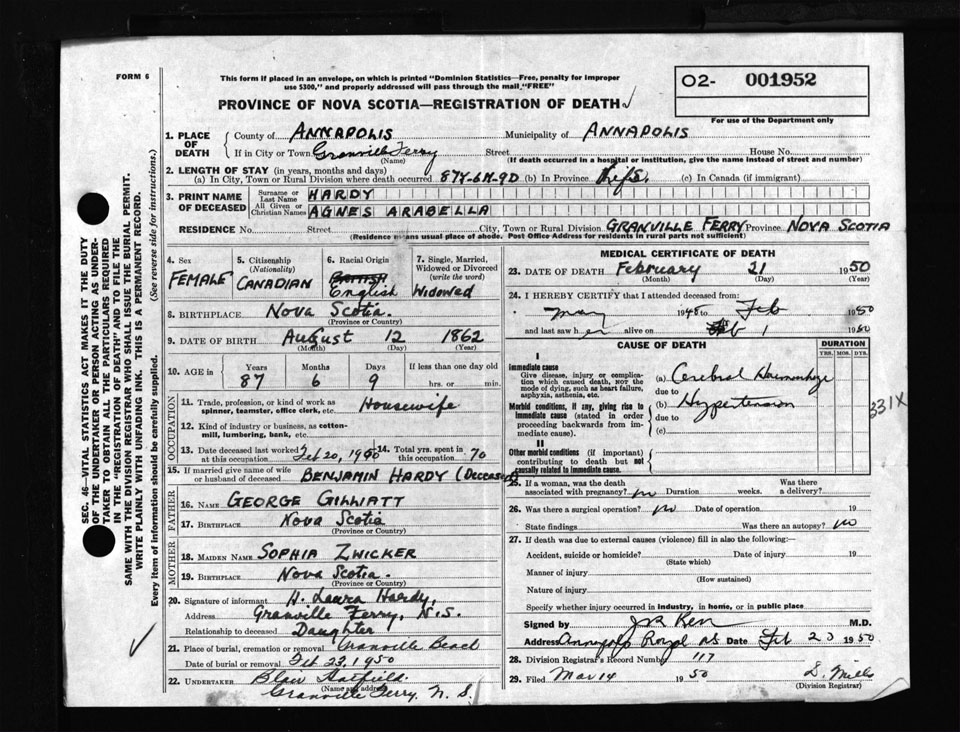 FORM 6
This form if placed in an envelope, on which is printed "Dominion Statistics—Free, penalty for improper
use $300," and properly addressed will pass through the mail "FREE"
PROVINCE OF NOVA SCOTIA—REGISTRATION OF DEATH
O2- 001952
For use of the Department only
SEC. 46—VITAL STATISTICS ACT MAKES IT THE DUTY
OF THE UNDERTAKER OR PERSON ACTING AS UNDER-
TAKER TO OBTAIN ALL THE PARTICULARS REQUIRED
IN THE "REGISTRATION OF DEATH" AND TO FILE THE
SAME WITH THE DIVISION REGISTRAR WHO SHALL ISSUE THE BURIAL PERMIT.
WRITE PLAINLY WITH UNFADING INK. THIS IS A PERMANENT RECORD.
Every item of Information should be carefully supplied. (See reverse side for instructions.)
1. PLACE OF DEATH County of ANNAPOLIS Municipality of ANNAPOLIS
If in City or Town Granville Ferry Street House No.
(Name) (If death occurred in a hospital or institution, give the name instead of street and number)
2. LENGTH OF STAY (in years, months and days)
(a) In City, Town or Rural Division where death occurred 87Y-6M-9D (b) In Province Life. (c) In Canada (if immigrant)
3. PRINT NAME OF DECEASED Surname or Last Name HARDY
All Given or Christian Names AGNES ARABELLA
RESIDENCE No. Street City, Town or Rural Division GRANVILLE FERRY Province NOVA SCOTIA
(Residence means usual place of abode. Post Office Address for residents in rural parts not sufficient)
4. Sex FEMALE
5. Citizenship (Nationality) CANADIAN
6. Racial Origin English
7. Single, Married, Widowed or Divorced (write the word) Widowed
8. BIRTHPLACE Nova Scotia.
(Province or Country)
9. DATE OF BIRTH August 12 1862
(Month) (Day) (Year)
10. AGE in Years 87 Months 6 Days 9 If less than one day old
hrs. or min.
OCCUPATION
11. Trade, profession, or kind of work as
spinner, teamster, office clerk, etc. Housewife
12. Kind of industry or business, as cotton-
mill, lumbering, bank, etc.
13. Date deceased last worked at this occupation Feb 20, 1950 14. Total yrs. spent in this occupation 70
15. If married give name of wife
or husband of deceased BENJAMIN HARDY (Deceased)
FATHER
16. NAME GEORGE GILLIATT
17. BIRTHPLACE Nova Scotia
(Province or Country)
MOTHER
18. MAIDEN NAME SOPHIA ZWICKER
19. BIRTHPLACE Nova Scotia.
(Province or Country)
20. Signature of informant H. Laura Hardy,
Address Granville Ferry, N.S.
Relationship to deceased Daughter
21. Place of burial, cremation or removal Granville Beach
Date of burial or removal Feb 23, 1950
22. UNDERTAKER Blair Hatfield.
(Name and address)
Granville Ferry, N.S.
MEDICAL CERTIFICATE OF DEATH
23. DATE OF DEATH February 21 1950
(Month) (Day) (Year)
24. I HEREBY CERTIFY that I attended deceased from:
May 1948 to Feb 1950
and last saw h er alive on Feb 1 1950
CAUSE OF DEATH
DURATION
YRS. MOS. DYS.
I
Immediate cause
Give disease, injury or complica-
tion which caused death, NOT the
mode of dying, such as heart failure,
asphyxia, asthenia, etc.
(a) Cerebral Haemorrhage
due to
Morbid conditions, if any, giving rise to
immediate cause (stated in order
proceeding backwards from im-
mediate cause).
(b) Hypertension
due to
(c)
331X
II
Other morbid conditions (if important)
contributing to death but not
causally related to immediate cause.
25. If a woman, was the death
associated with pregnancy? no Duration weeks. Was there a delivery?
26. Was there a surgical operation? no Date of operation 19
State findings Was there an autopsy? no
27. If death was due to external causes (violence) fill in also the following:—
Accident, suicide or homicide? Date of injury 19
(State which)
Manner of injury
(How sustained)
Nature of injury
Specify whether injury occurred in industry, in home, or in public place
Signed by M.D.
Address Annapolis Royal NS Date Feb 23 1950
28. Division Registrar's Record Number 117
29. Filed Mar 14 1950 S. Mills
(Division Registrar)